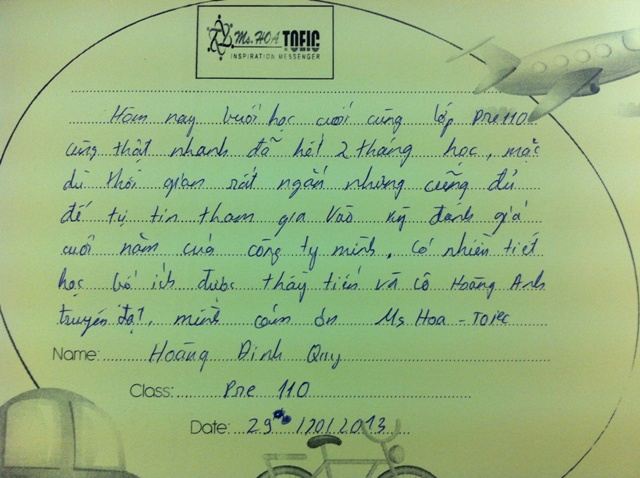 Ms. HOA TOEIC
INSPIRATION MESSENGER
Hôm nay buổi học cuối cùng lớp Pre 110
cũng thật nhanh đã hết 2 tháng học, mặc
dù thời gian rất ngắn nhưng cũng đủ
để tự tin tham gia vào kỳ đánh giá
cuối năm của công ty mình, có nhiều tiết
học bổ ích được thầy tiến và cô Hoàng Anh
truyền đạt, mình cảm ơn Ms Hoa - TOIEC
Name: Hoàng Đình Quy
Class: Pre 110
Date: 29/20/2013